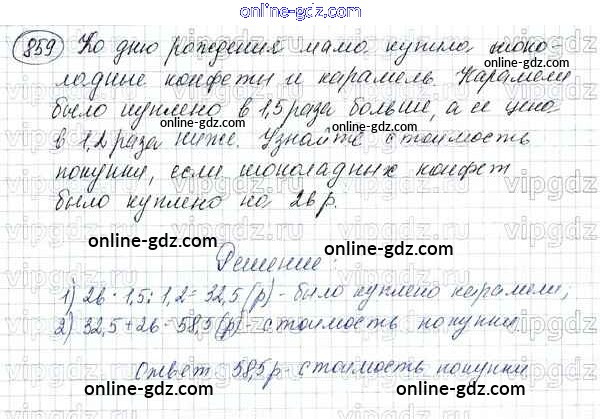 online-gdz.com
859 Ко дню рождения мама купила шоко-
ладные конфеты и карамель. Карамели
было куплено в 1,5 раза больше, а ее цена
в 1,2 раза ниже. Узнайте стоимость
покупки, если шоколадных конфет
было куплено на 26 р.
online-gdz.com
Решение:
1) 26 · 1,5 : 1,2 = 32,5 (р) - было куплено карамели;
2) 32,5 + 26 = 58,5 (р) - стоимость покупки
Ответ 58,5 р - стоимость покупки
online-gdz.com